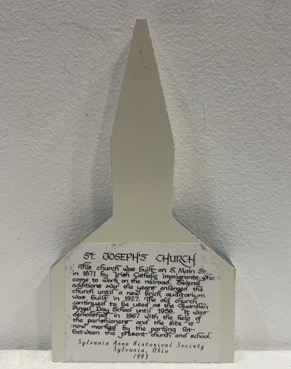 ST. JOSEPH'S CHURCH
This church was built on S. Main St.
in 1871 by Irish Catholic immigrants who
came to work on the railroad. Several
additions over the years enlarged the
church until a new brick auditorium
was built in 1927. The old church
continued to be used as the Guardian
Angel Day School until 1956. It was
demolished in 1967 with the help of
the parishioners and the site is
now marked by the parking lot
between the present church and school.
Sylvania Area Historical Society
Sylvania, Ohio
1993